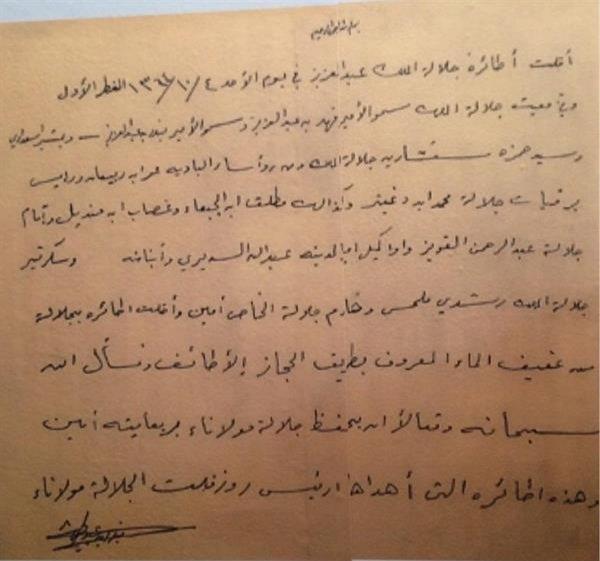 بسم الله الرحمن الرحيم
أقلت اطائرة جلالة الملك عبدالعزيز في يوم الأحد ١٣٦٤/١٠/٤ الفطر الأول
وفي معيت جلالة الملك سمو الأمير فهد بن عبدالعزيز وسمو الأمير بندر بن عبدالعزيز وبشير السعداوي
وسيد حمزه مستشارين جلالة الملك ومن رؤأساء البادية عمر ابن ربيعان ورايس
برقيات جلالة محمد ابن دغيثر وكذالك مطلق ابن الجبعاء وغصاب ابن منديل وأمام
جلالة عبدالرحمن القويز واوكيل امالمدينه عبدالله السديري وأبنائه وسكرتير
جلالة الملك رشدي ملحس وخادم جلالة الخاص أمين وأقلت اطائره بجلالة
من عفيف الماء المعروف بطريق الحجاز إلأطائف ونسأل الله
سبحانه وتعالأ ان يحفظ جلالة مولاناء برعايته أمين
وهذه اطائره التى أهداها ارئيس روزفلت الجلالة مولاناء